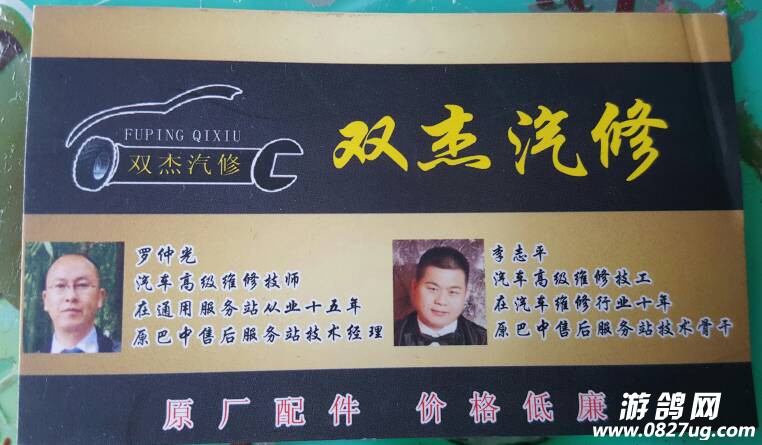 FUPING QIXIU
双杰汽修
双杰汽修
罗仲光
汽车高级维修技师
在通用服务站从业十五年
原巴中售后服务站技术经理
李志平
汽车高级维修技工
在汽车维修行业十年
原巴中售后服务站技术骨干
原厂配件 价格低廉
游鸽网
www.0827ug.com